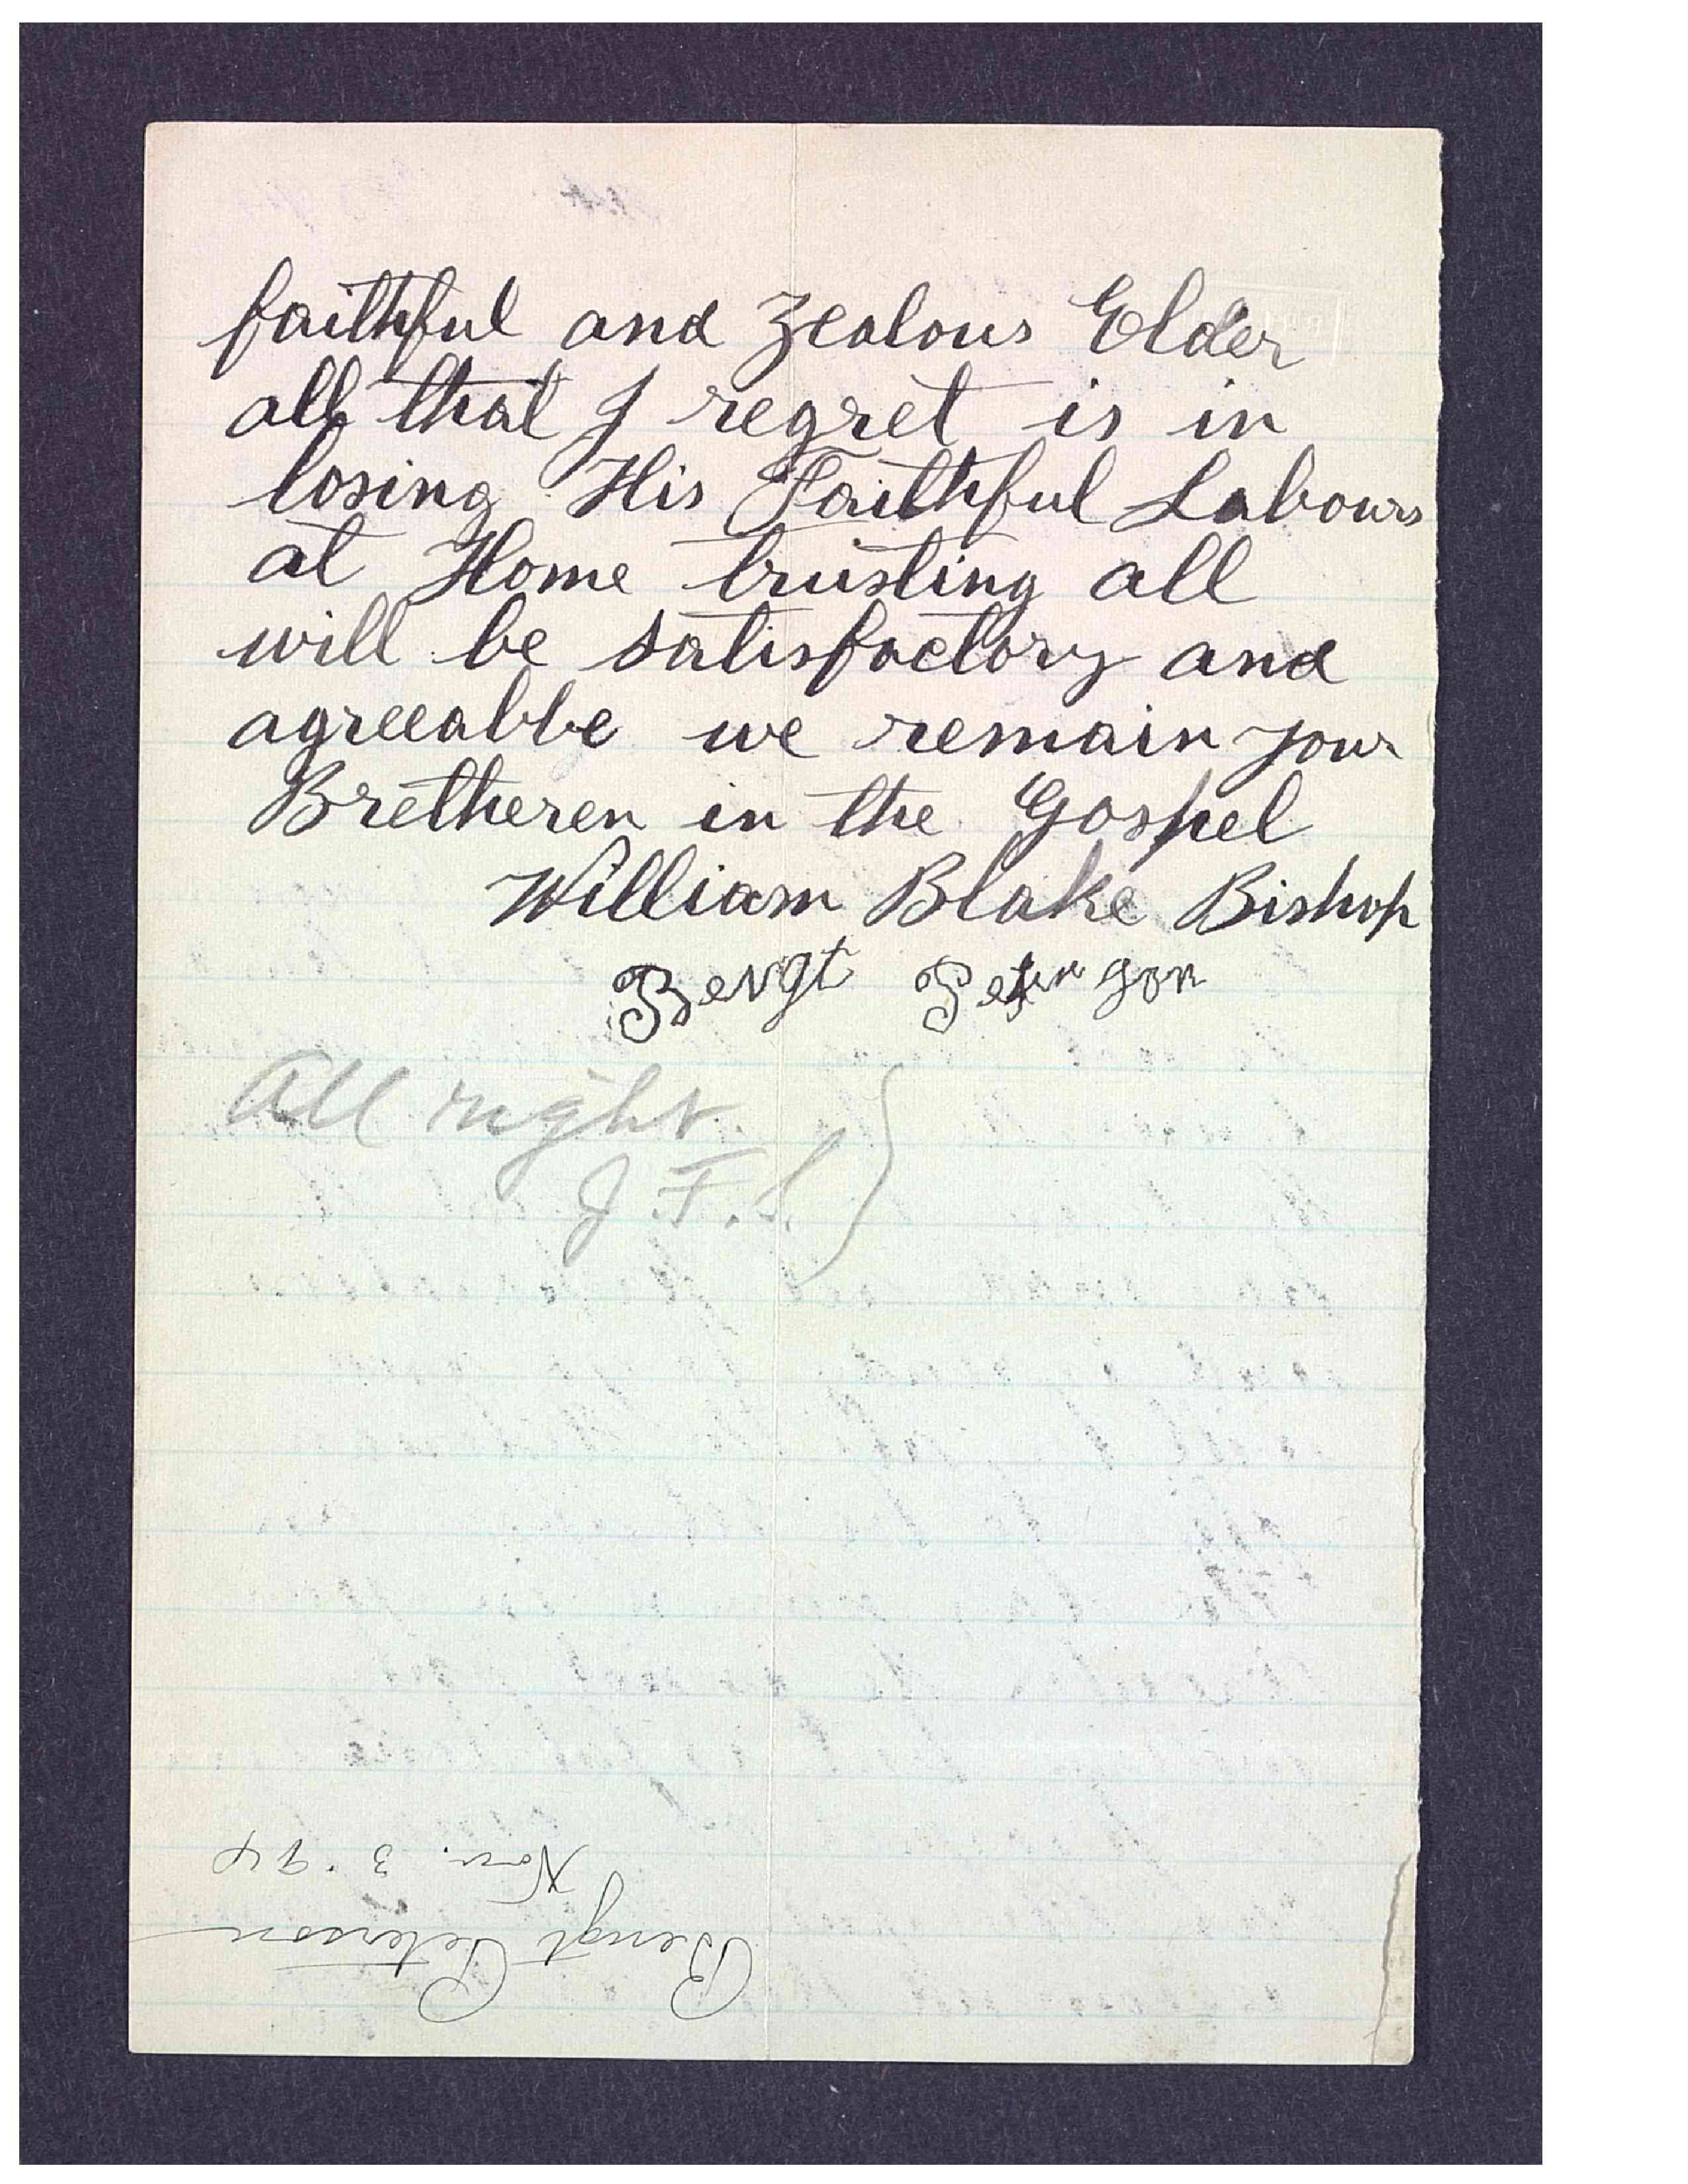 faithful and Zealous Elder
all that I regret is in
losing His Faithful Labours
at Home trusting all
will be satisfactory and
agreeable we remain your
Bretheren in the Gospel
William Blake Bishop
Bengt Peterson
All right.
J. F. S.
Bengt Peterson
Nov. 3 '94